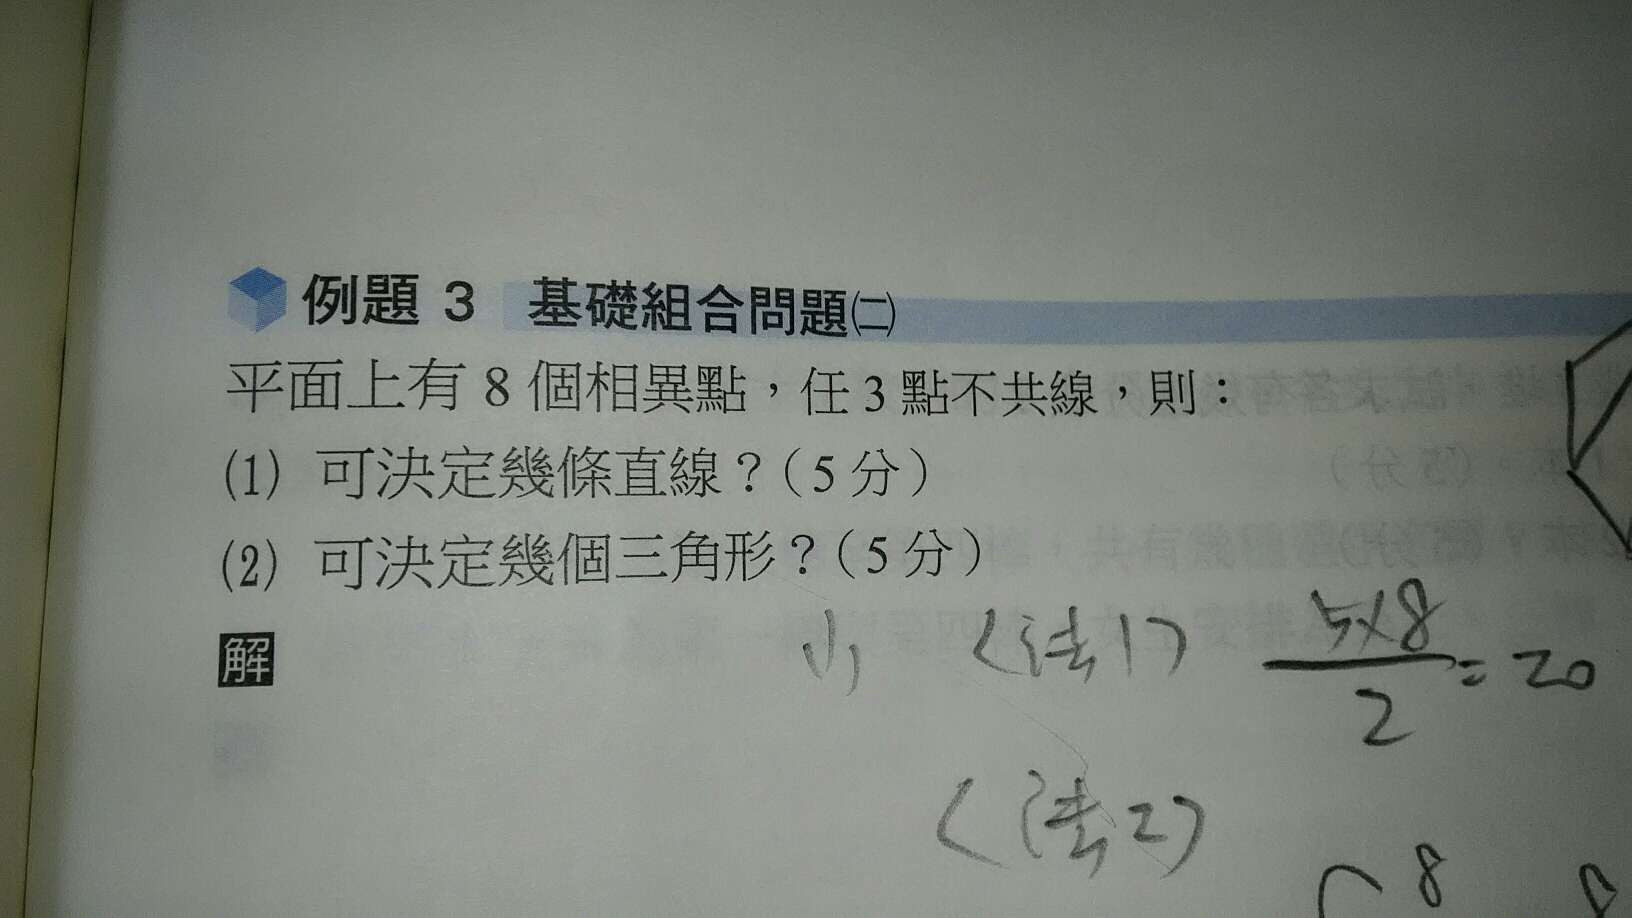 例題 3 基礎組合問題㈡
平面上有 8 個相異點，任 3 點不共線，則：
(1) 可決定幾條直線？（5 分）
(2) 可決定幾個三角形？（5 分）
解
(1) <法1> 5×8/2 = 20
<法2>
C 8